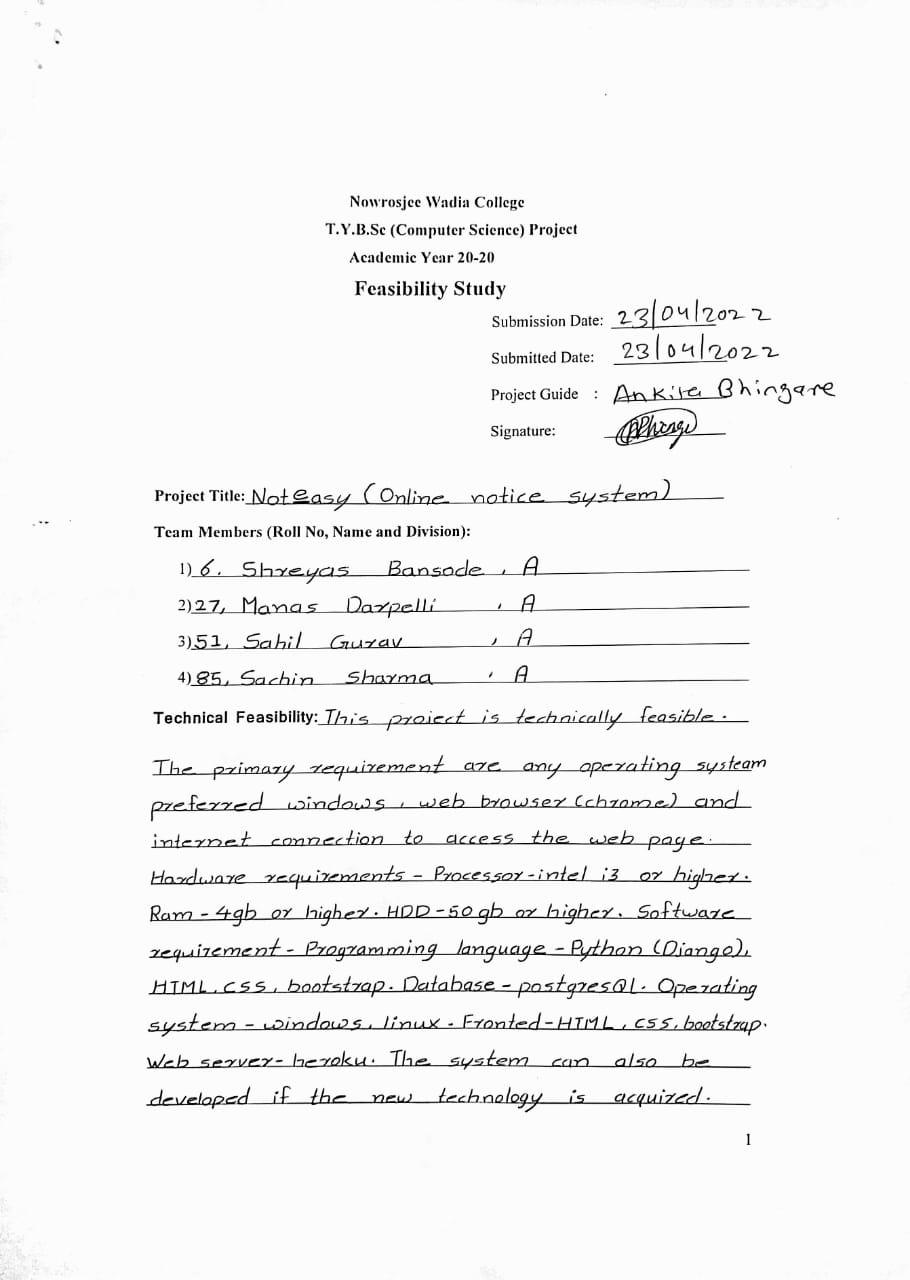 Nowrosjee Wadia College
T.Y.B.Sc (Computer Science) Project
Academic Year 20-20
Feasibility Study
Submission Date: 23/04/2022
Submitted Date: 23/04/2022
Project Guide : Ankita Bhingare
Signature:
Project Title: Noteasy (Online notice system)
Team Members (Roll No, Name and Division):
1) 6. Shreyas Bansode, A
2) 27, Manas Darpelli, A
3) 51, Sahil Gurav, A
4) 85, Sachin Sharma, A
Technical Feasibility: This project is technically feasible.
The primary requirement are any operating systeam
preferred windows, web browser (chrome) and
internet connection to access the web page.
Hardware requirements - Processor-intel i3 or higher.
Ram - 4gb or higher. HDD-50 gb or higher. Software
requirement - Programming language - Python (Django),
HTML, CSS, bootstrap. Database - postgresQl. Operating
system - windows, linux. Fronted-HTML, CSS, bootstrap.
Web server- heroku. The system can also be
developed if the new technology is acquired.
1